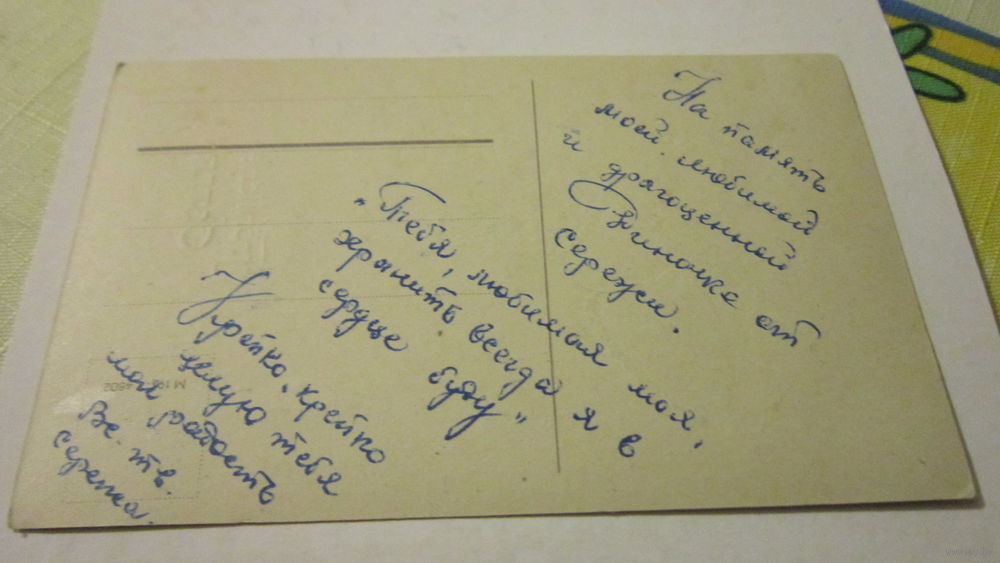 На память
моей любимой
и драгоценной
Зиночке от
Сережи.
"Тебя, любимая моя,
хранить всегда я в
сердце буду"
Крепко, крепко
целую тебя
моя радость
Вс. тв.
Сережка.